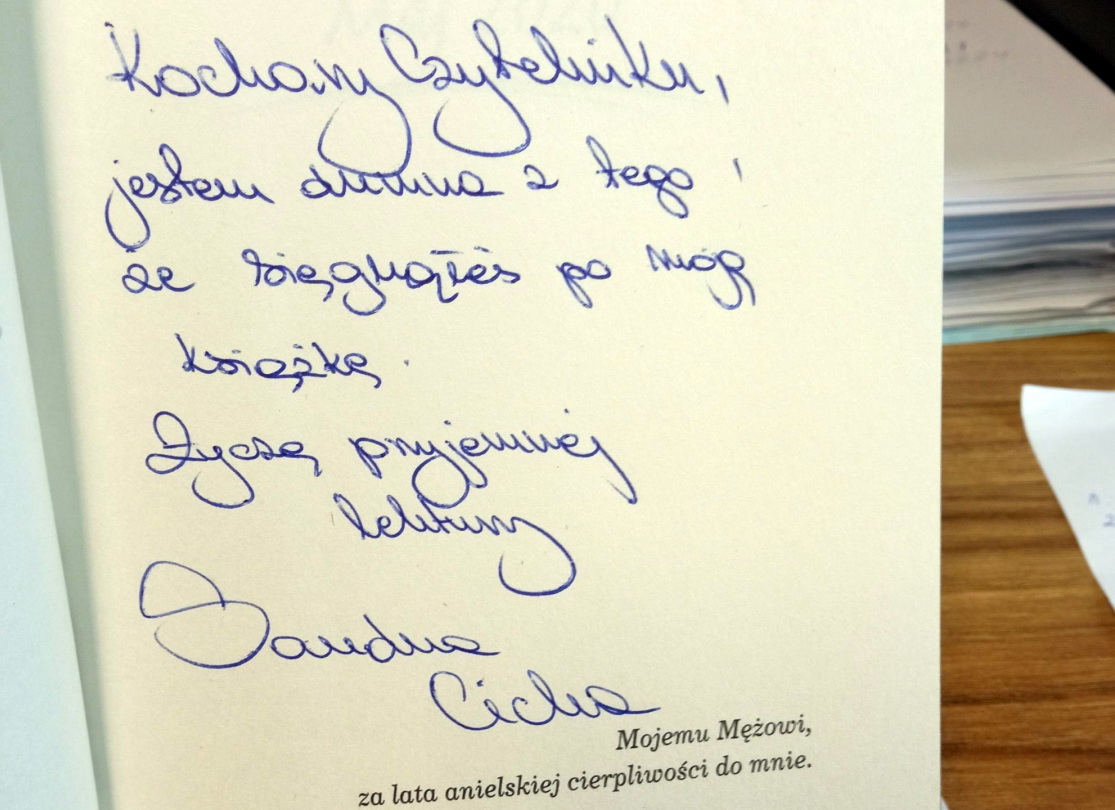 Kochany Czytelniku,
jestem dumna z tego,
że sięgnąłeś po moją
książkę.
Życzę przyjemnej
lektury
Sandra
Cicha
Mojemu Mężowi,
za lata anielskiej cierpliwości do mnie.